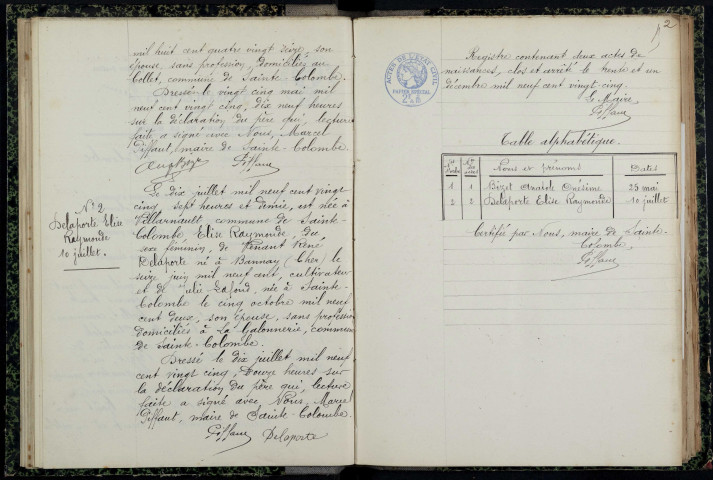 mil huit cent quatre vingt seize, son
épouse sans profession, domiciliés au
Collet, commune de Sainte-Colombe.
Dressé le vingt cinq mai mil
neuf cent vingt cinq, dix neuf heures
sur la déclaration du père qui, lecture
faite a signé avec Nous, Marcel
Piffaut, maire de Sainte-Colombe.
N° 2
Delaporte Elise
Raymonde
10 juillet.
Le dix juillet mil neuf cent vingt
cinq sept heures et demie, est née à
Villarnault, commune de Sainte-
Colombe Elise Raymonde, du
sexe féminin, de Venant René
Delaporte né à Bannay (Cher) le
seize juin mil neuf cent, cultivateur
et de Julie Lafond, née à Sainte-
Colombe le cinq octobre mil neuf
cent deux, son épouse, sans profession
domiciliés à La Galonnerie, commune
de Sainte-Colombe.
Dressé le dix juillet mil neuf
cent vingt cinq, Douze heures sur
la déclaration du père qui, lecture
faite a signé avec Nous, Marcel
Piffaut, maire de Sainte-Colombe.
Piffaut Delaporte
2
ACTES DE L'ETAT CIVIL
PAPIER SPECIAL
Registre contenant deux actes de
naissances, clos et arrêté le trente et un
décembre mil neuf cent vingt cinq.
Le Maire,
Piffaut
Table alphabétique.
Noms et prénoms Dates
1 1 Bizet Anatole Onésime 25 mai
2 2 Delaporte Elise Raymonde 10 juillet
Certifié par Nous, maire de Sainte-
Colombe.
Piffaut